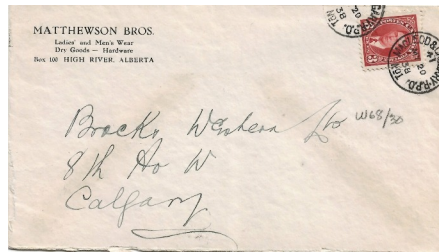 MATTHEWSON BROS.
Ladies' and Men's Wear
Dry Goods — Hardware
Box 100 HIGH RIVER, ALBERTA
20
38
MACLEOD & 
20
38
R.P.D.
3
Western Ltd W68/30
8th Av W
Calgary